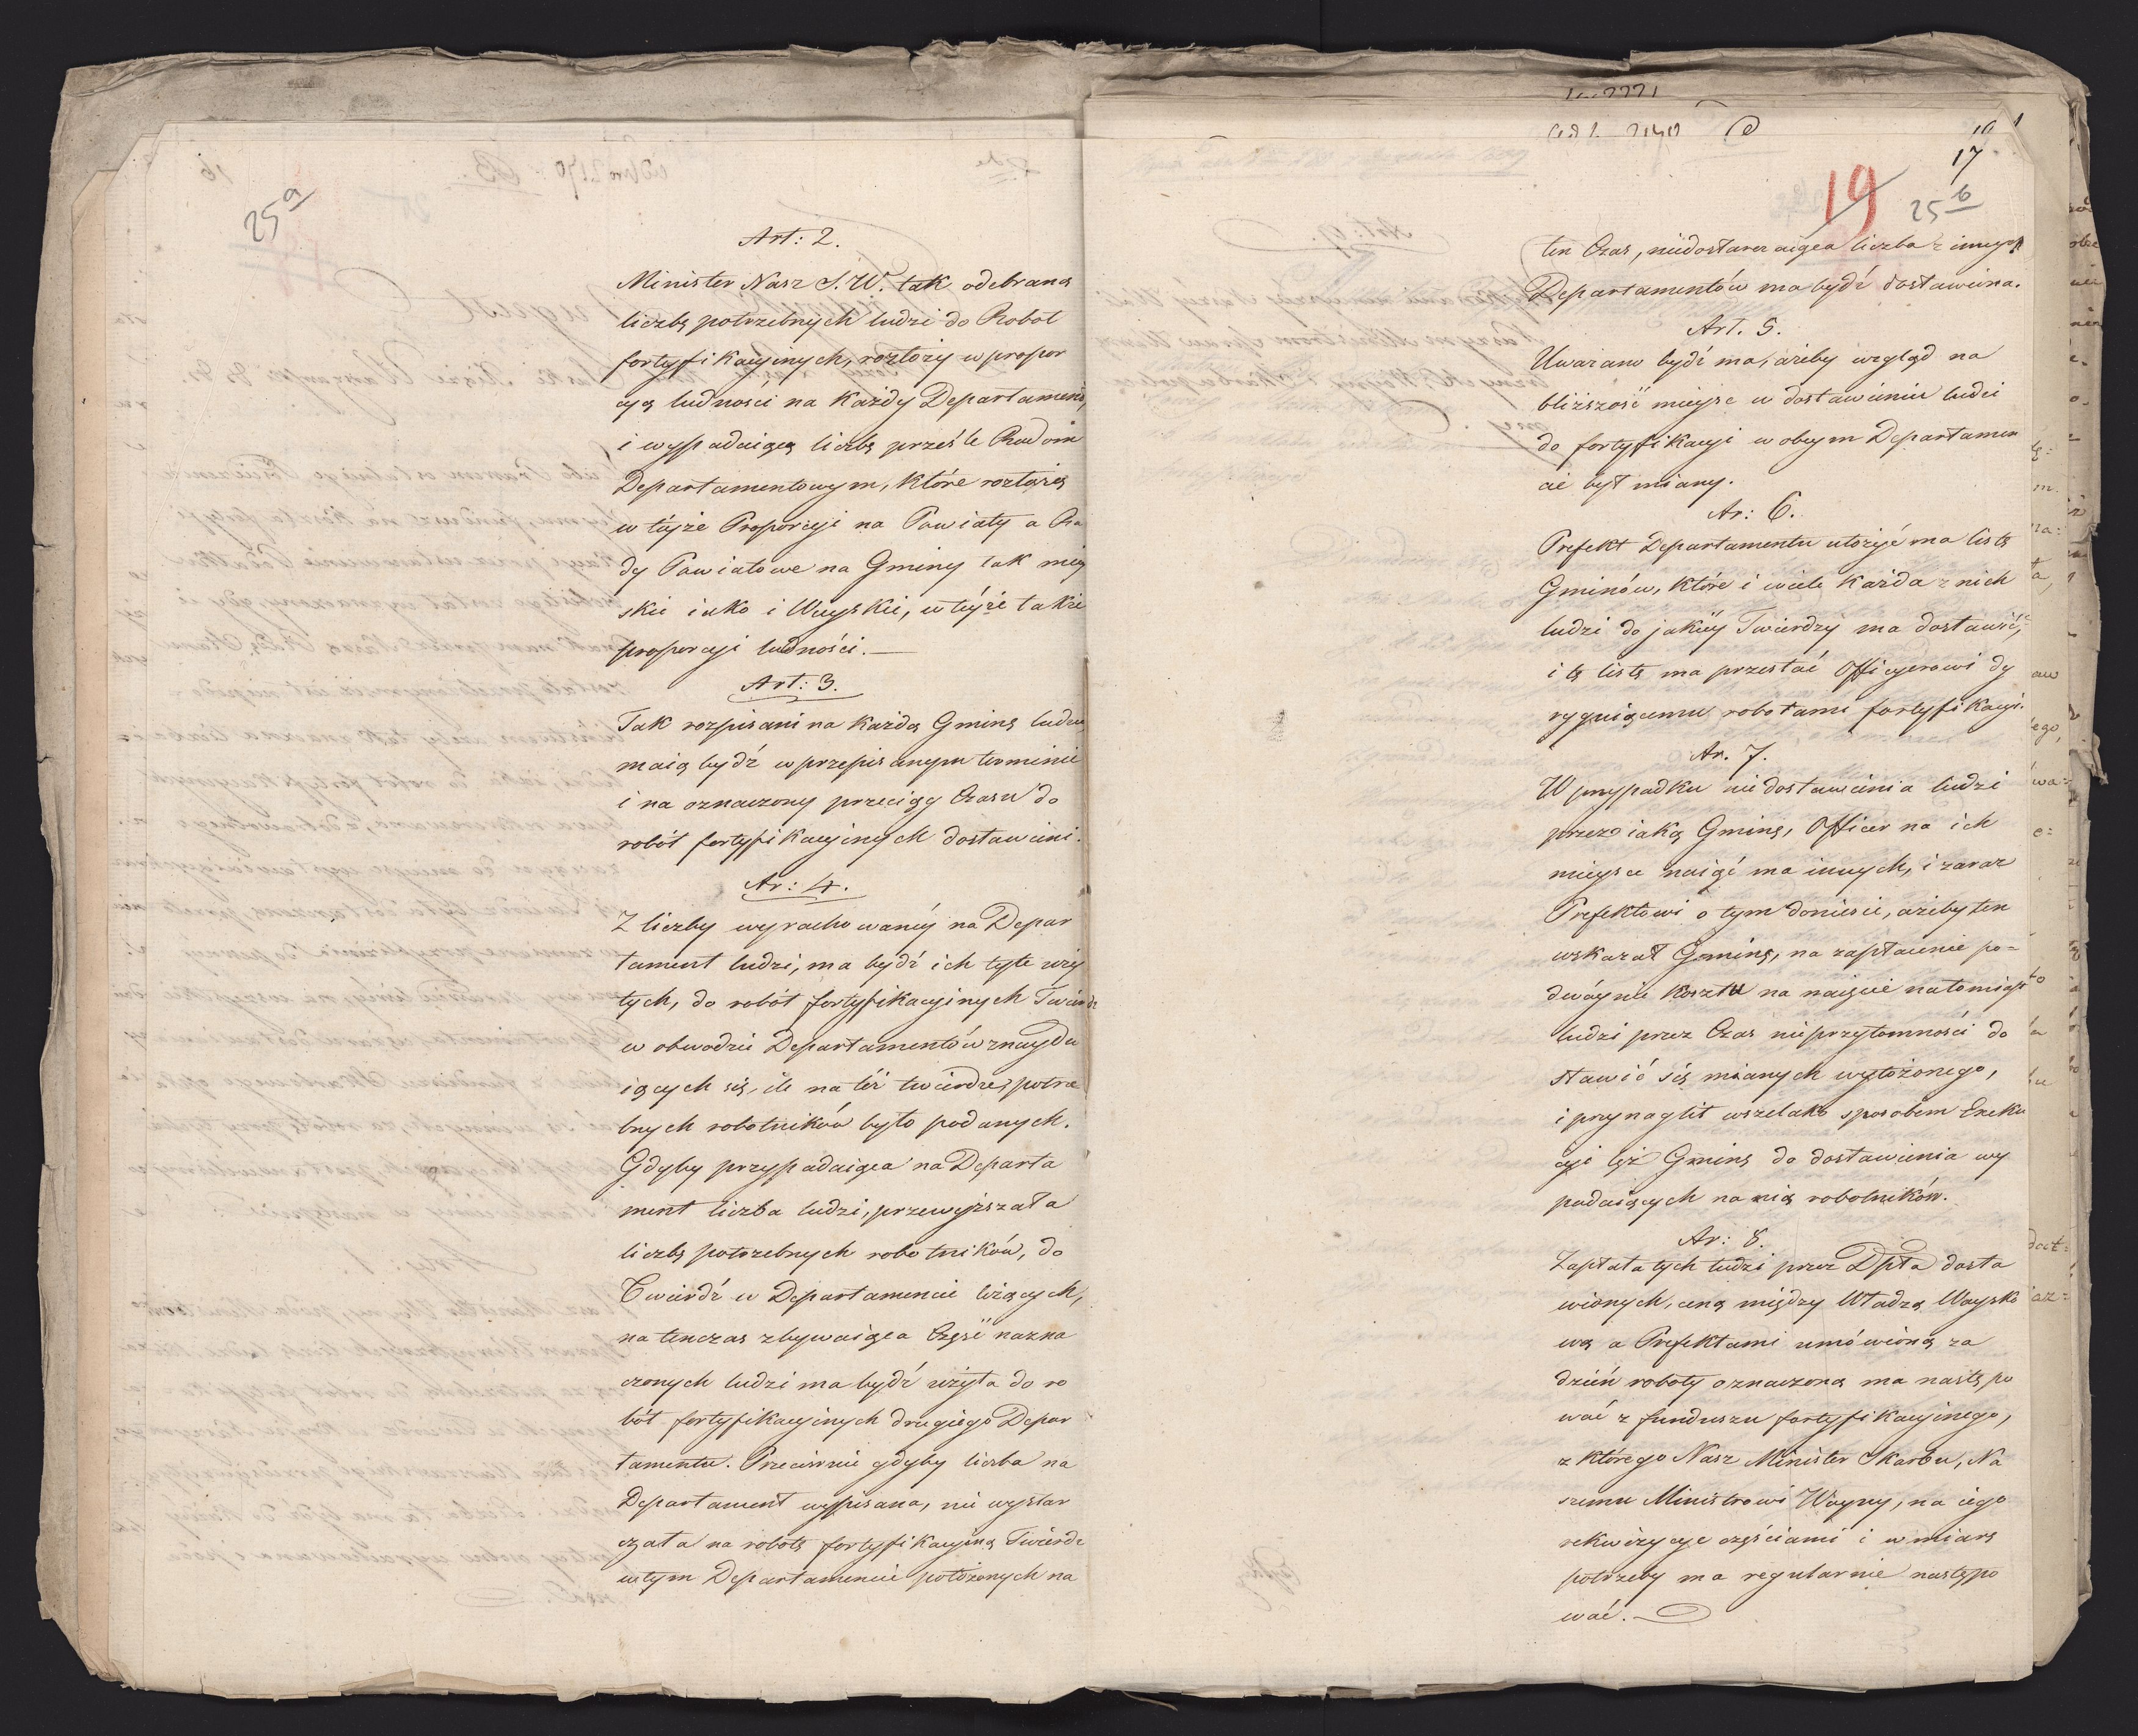 25a
Art: 2.
Minister Nasz S. W. tak odebraną
liczbę potrzebnych ludzi do Robot
fortyfikacyinych, rozłoży w propor
cyą ludności na każdy Departament,
i wypadaiącą liczbę prześle Radom
Departamentowym, które rozłożą
w téyże Proporcyi na Powiaty a Ra
dy Powiatowe na Gminy tak miey
skie iako i Wieyskie, w téyże także
proporcyi ludności.—
Art: 3.
Tak rozpisani na każdą Gminę ludzie,
maią bydź w przepisanym terminie
i na oznaczony przeciąg Czasu do
robót fortyfikacyinych dostawieni.
Ar: 4.
Z liczby wyrachowanéy na Depar
tament ludzi, ma bydź ich tyle uży
tych, do robót fortyfikacyinych Twierdz
w obwodzie Departamentów znaydu
iących się, ile na téż twierdze potrze
bnych robotników było podanych.
Gdyby przypadaiąca na Departa
ment liczba ludzi, przewyższała
liczbę potrzebnych robotników, do
Twierdź w Departamencie leżących,
na tenczas zbywaiąca Część nazna
czonych ludzi ma bydź użyta do ro
bót fortyfikacyinych drugiego Depar
tamentu. Przeciwnie gdyby liczba na
Departament wypisana, nie wystar
czała na robotę fortyfikacyiną Twierdz
w tym Departamencie położonych na
17
19
25b
ten Czas, niedostarczaiąca liczba z innych
Departamentów ma bydź dostawiona.
Art. 5.
Uważano bydź ma, ażeby wzgląd na
bliższość mieysc w dostawieniu ludzi
do fortyfikacyi w obcym Departamen
cie był miany.
Ar: 6.
Prefekt Departamentu ułożyć ma listę
Gminów, które i wiele każda z nich
ludzi do jakiéy Twierdzy ma dostawić,
i tę listę ma przesłać Officyerowi dy
ryguiącemu robotami fortyfikacyi.
Ar. 7.
W przypadku niedostawienia ludzi
przez iaką Gminę, Officer na ich
mieysce naiąć ma innych, i zaraz
Prefektowi o tym doniesie, ażeby ten
wskazał Gminę, na zapłacenie po=
dwóynie kosztu na naięcie natomiast
ludzi przez Czas nieprzytomności do
stawić się mianych wyłożonego,
i przynaglił wszelako sposobem Exeku
cyi tęż Gminę do dostawienia wy
padaiących na nią robotników.
Ar: 8.
Zapłata tych ludzi przez Dpta dosta
wionych, ceną między Władzą Woysko
wą a Prefektami umówioną za
dzień roboty oznaczoną ma nastę po
wać z funduszu fortyfikacyinego,
z którego Nasz Minister Skarbu, Na
szemu Ministrowi Woyny, na iego
rekwizycye częściami i w miarę
potrzeby ma regularnie nastę po
wać.